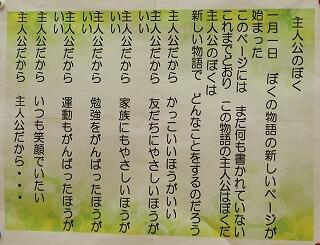 主人公のぼく
一月一日　ぼくの物語の新しいページが
始まった
このページには　まだ何も書かれていない
これまでどおり　この物語の主人公はぼくだ
主人公のぼくは
新しい物語で　どんなことをするのだろう
主人公だから　かっこいいほうがいい
主人公だから　友だちにやさしいほうが
いい
主人公だから　家族にもやさしいほうが
いい
主人公だから　勉強をがんばったほうが
いい
主人公だから　運動もがんばったほうが
いい
主人公だから　いつも笑顔でいたい
主人公だから　主人公だから・・・